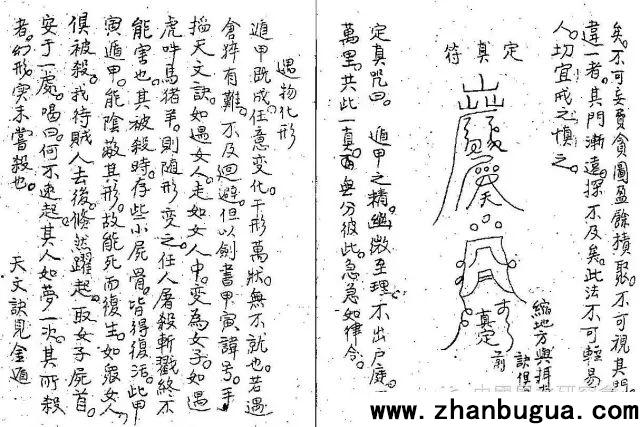 矣。不可妄費貪圖盈餘積聚。不可視其門
違一者。其門漸遠。探不及矣。此法不可輕易
人。切宜戒之慎之。
縮地方與
訣俱
前
定真符
真定
定真咒曰。 遁甲之精。幽微至理。不出户庭
萬里。共此一真。而無分彼此。急急如律令。
遇物化形
遁甲既成。任意變化。千形萬狀。無不就也。若遇
倉猝有難。不及迴避。但以劍書甲寅諱号。手
搯天文訣。如遇女人走如女人中。變為女子。如遇
虎吽馬猪羊。則隨形變之。任人屠殺斬戳終不
能害也。其被殺時。存些小屍骨。皆得復活。此甲
寅遁甲。能陰蔽其形。故能死而復生。如眾女人
俱被殺。我待賊人去後。倏然躍起。取女子屍首。
安于一處。喝曰何不速起。其人如夢一次。其所殺
者。幻形实未嘗殺也。 天文訣見金遁
www.zhanbugua.com